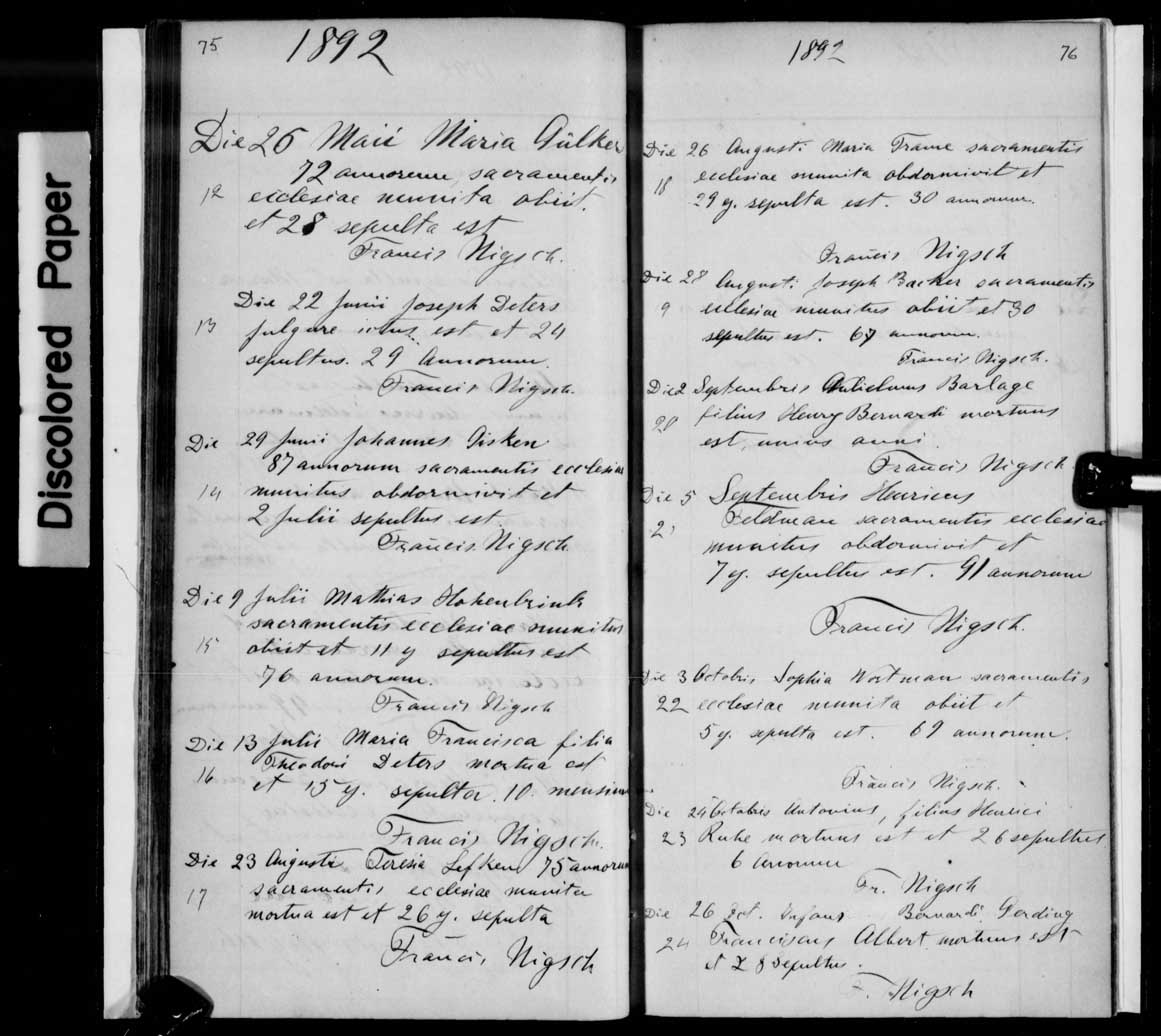 Discolored Paper
75 1892
Die 26 Maii Maria Gülker
72 annorum, sacramentis
12 ecclesiae munita obiit.
et 28 sepulta est
Francis Nigsch.
Die 22 Junii Joseph Deters
13 fulgure ictus est et 24
sepultus. 29 Annorum.
Francis Nigsch.
Die 29 Junii Johannes Gisken
87 annorum sacramentis ecclesiae
14 munitus obdormivit et
2 Julii sepultus est
Francis Nigsch.
Die 9 Julii Mathias Hohenbrink
sacramentis ecclesiae munitus
15 obiit et 11 ej sepultus est
76 annorum.
Francis Nigsch
Die 13 Julii Maria Francisca filia
Theodori Deters mortua est
16 et 15 ej. sepulta. 10. mensium
Francis Nigsch.
Die 23 Augusti Teresia Lefken 75 annorum
17 sacramentis ecclesiae munita
mortua est et 26 ej. sepulta
Francis Nigsch
1892 76
Die 26 August. Maria Trame sacramentis
18 ecclesiae munita obdormivit et
29 ej. sepulta est. 30 annorum.
Francis Nigsch
Die 28 Augusti Joseph Backer sacramentis
9 ecclesiae munitus obiit et 30
sepultus est. 67 annorum.
Francis Nigsch.
Die 2 Septembris Barlage
20 filius Henry Bernardi mortuus
est, unius anni.
Francis Nigsch.
Die 5 Septembris Henricus
2' Feldman sacramentis ecclesiae
munitus obdormivit et
7 ej. sepultus est. 91 annorum
Francis Nigsch.
Die 3 Octobris Sophia Wortman sacramentis
22 ecclesiae munita obiit et
5 ej. sepulta est. 69 annorum.
Francis Nigsch.
Die 24 Octobris Antonius, filius Henrici
23 Ruhe mortuus est et 26 sepultus
6 Anorum
Fr. Nigsch
Die 26 Oct. Infans Bernardi Gerding
24 Franciscus Albert mortuus est
et 28 sepultus.
F. Nigsch